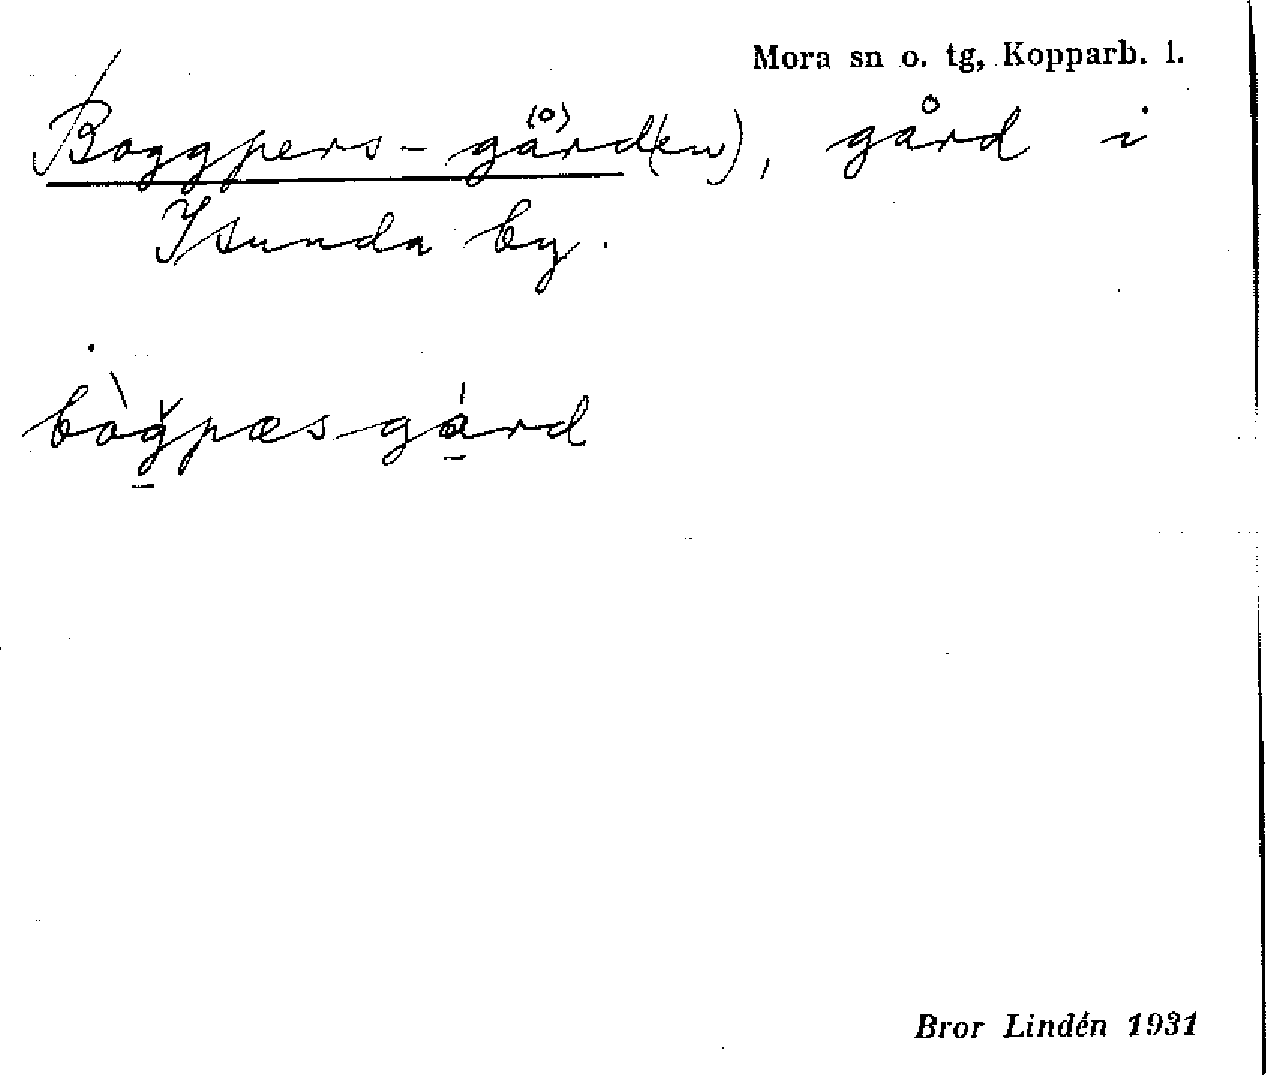 Mora sn o. tg, Kopparb. l.
Boggpers-gå(o)rd(en), gård i
Isunda by.
bòğ̱pæs-gá̱rd
Bror Lindén 1931